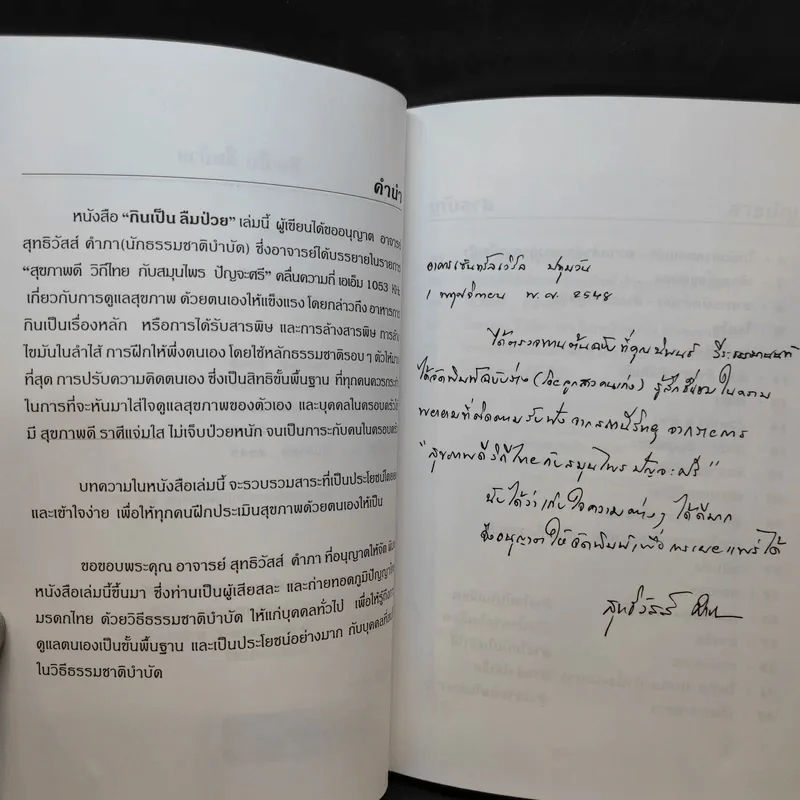 คำนำ
หนังสือ “กินเป็น ลืมป่วย” เล่มนี้ ผู้เขียนได้ขออนุญาต อาจารย์
สุทธิวัสส์ คำภา(นักธรรมชาติบำบัด) ซึ่งอาจารย์ได้บรรยายในรายการ
“สุขภาพดี วิถีไทย กับสมุนไพร ปัญจะศรี” คลื่นความถี่ เอเอ็ม 1053 KHz
เกี่ยวกับการดูแลสุขภาพ ด้วยตนเองให้แข็งแรง โดยกล่าวถึง อาหารการ
กินเป็นเรื่องหลัก หรือการได้รับสารพิษ และการล้างสารพิษ การล้าง
ไขมันในลำไส้ การฝึกให้พึ่งตนเอง โดยใช้หลักธรรมชาติรอบๆ ตัวให้มาก
ที่สุด การปรับความคิดตนเอง ซึ่งเป็นสิทธิขั้นพื้นฐาน ที่ทุกคนควรกระทำ
ในการที่จะหันมาใส่ใจดูแลสุขภาพของตัวเอง และบุคคลในครอบครัวให้
มี สุขภาพดี ราศีแจ่มใส ไม่เจ็บป่วยหนัก จนเป็นภาระกับคนในครอบครัว
บทความในหนังสือเล่มนี้ จะรวบรวมสาระที่เป็นประโยชน์โดย
และเข้าใจง่าย เพื่อให้ทุกคนฝึกประเมินสุขภาพด้วยตนเองให้เป็น
ขอขอบพระคุณ อาจารย์ สุทธิวัสส์ คำภา ที่อนุญาตให้จัด พิมพ์
หนังสือเล่มนี้ขึ้นมา ซึ่งท่านเป็นผู้เสียสละ และถ่ายทอดภูมิปัญญา
มรดกไทย ด้วยวิธีธรรมชาติบำบัด ให้แก่บุคคลทั่วไป เพื่อให้รู้ถึง
ดูแลตนเองเป็นขั้นพื้นฐาน และเป็นประโยชน์อย่างมาก กับบุคคลที่
ในวิธีธรรมชาติบำบัด
อาคารเซ็นทรัลเวิร์ล ปทุมวัน
1 พฤศจิกายน พ.ศ. 2548
ได้ตรวจทานต้นฉบับ ที่คุณนิพนธ์
ได้จัดพิมพ์ฉบับร่าง (โดยลูกสาวคนเก่ง) รู้สึกชื่นชม ในความ
พยายามที่ติดตามรับฟัง จากสถานีวิทยุ จากรายการ
"สุขภาพดีวิถีไทยกับสมุนไพร ปัญจะศรี"
นับได้ว่าเก็บใจความต่างๆ ได้ดีมาก
จึงอนุญาตให้จัดพิมพ์เพื่อการเผยแพร่ได้
สุทธิวัสส์ คำภา